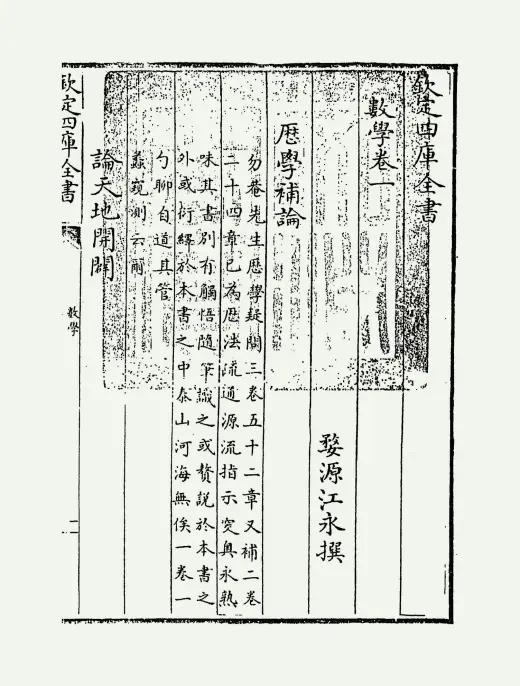 欽定四庫全書
數學卷一
婺源江永撰
厯學補論
勿菴先生厯學疑問三卷五十二章又補二卷
二十四章已為厯法流通源流指示穾奧永熟
味其書别有觸悟隨筆識之或贅説於本書之
外或衍繹於本書之中泰山河海無俟一卷一
勺聊自道其管
蠡窺測云爾
論天地開闢
欽定四庫全書
數學
一